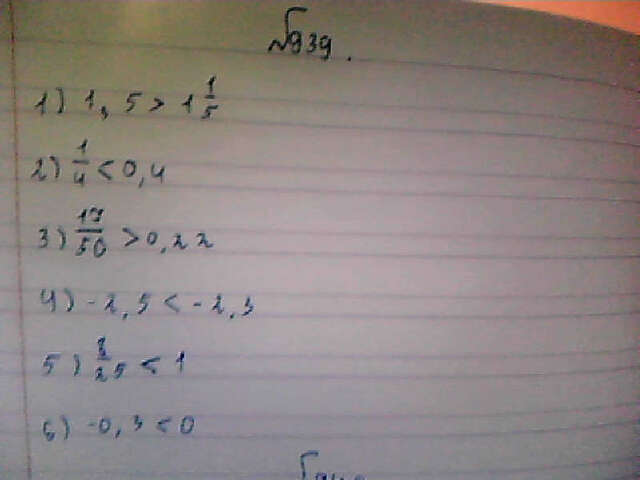 №939.
1) 1,5 > 1 1/5
2) 1/4 < 0,4
3) 17/50 > 0,22
4) -2,5 < -2,3
5) 3/25 < 1
6) -0,3 < 0